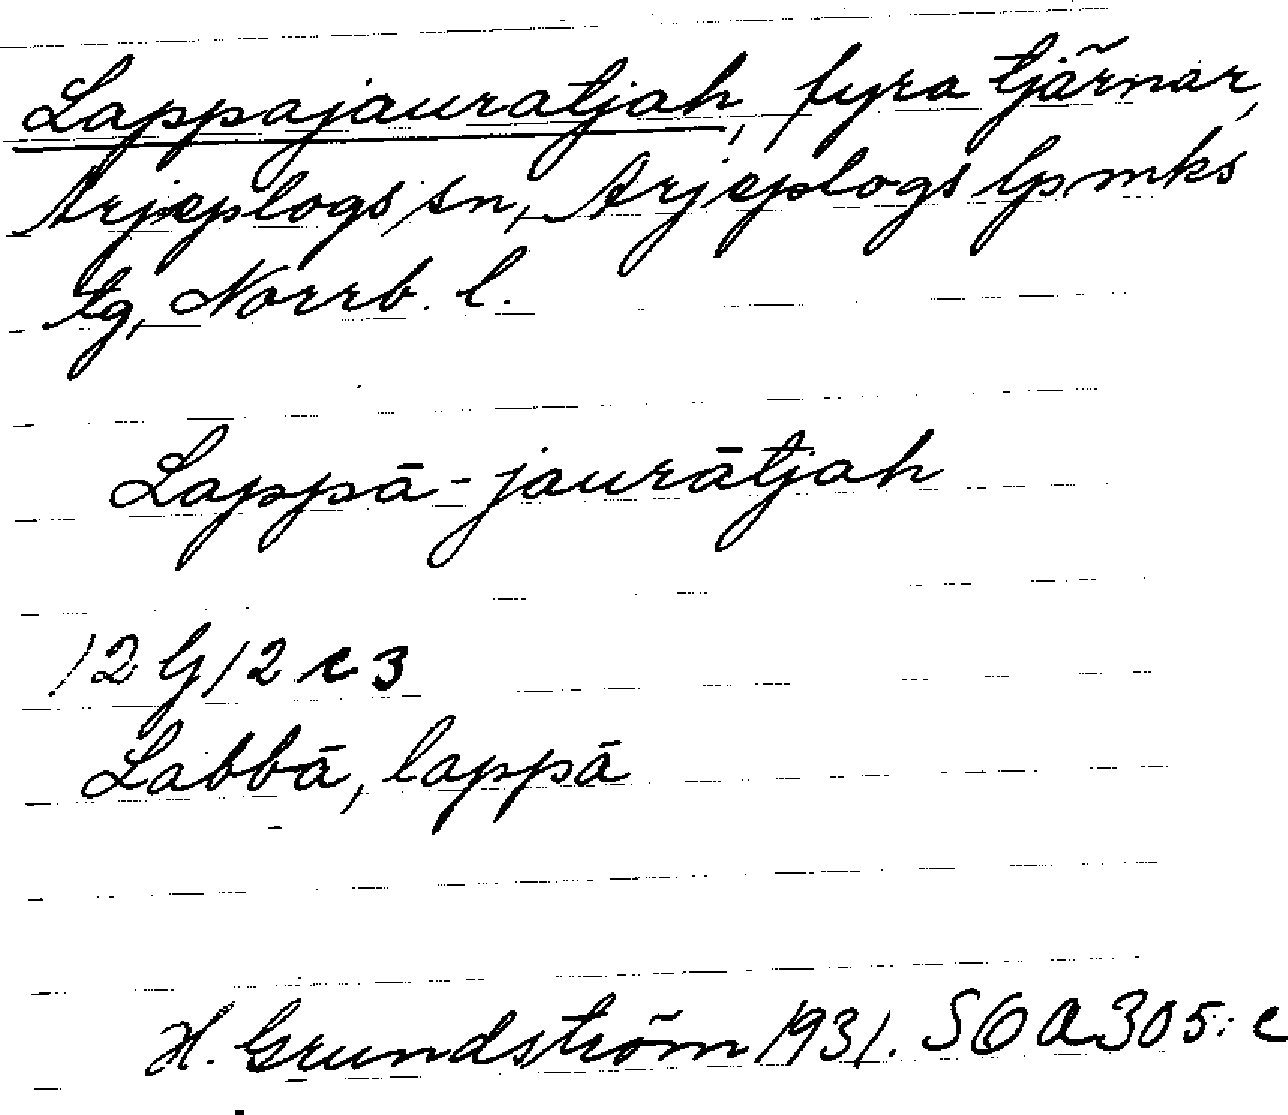 Lappajauratjah, fyra tjärnar,
Arjeplogs sn, Arjeplogs lpmks
tg, Norrb. l.
Lappā-jaurātjah
12 G 12 c 3
Labbā, lappā
H. Grundström 1931. SOA 305: c